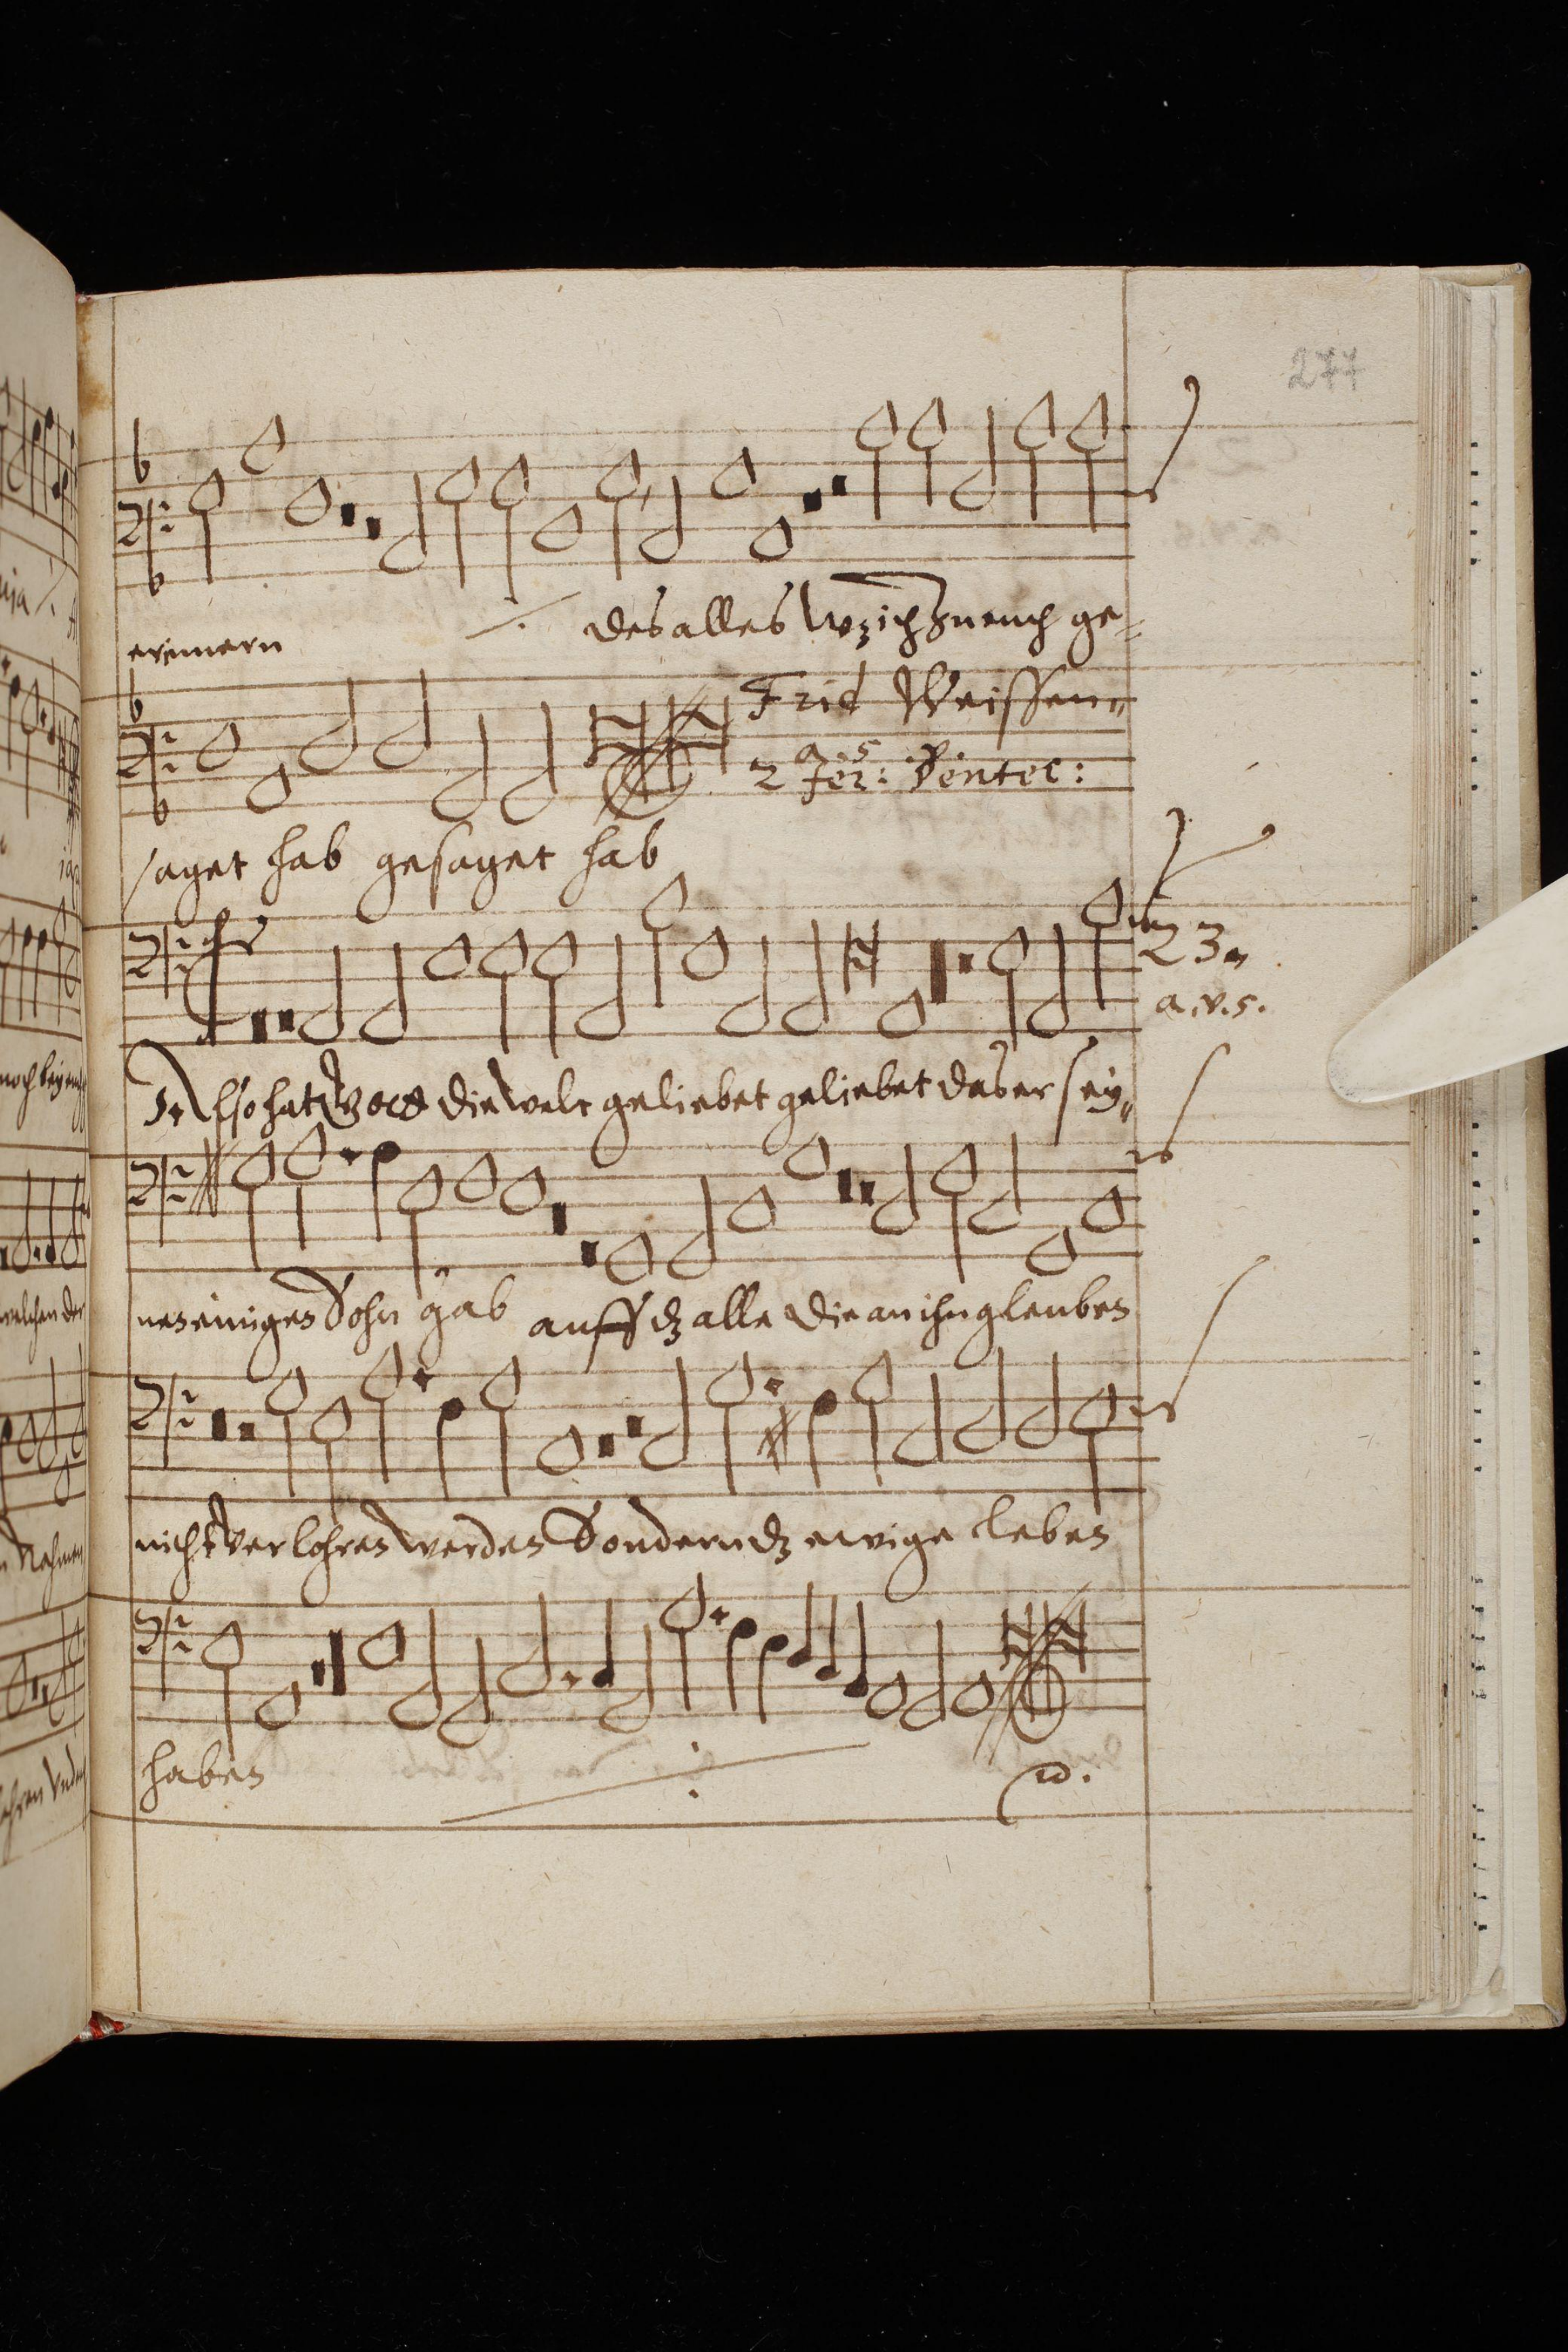 277
erinnern ./. des alles wz ich zu euch ge=
Frid Weissen„
a. 5
2 Fer: Pentec:
saget hab gesaget hab
23„
a. v. 5.
Also hat Gott die welt geliebet geliebet das er sey„
nen einigen Sohn gab auff dz alle die an ihn glauben
nicht verlohren werden Sondern dz ewige leben
haben ./.